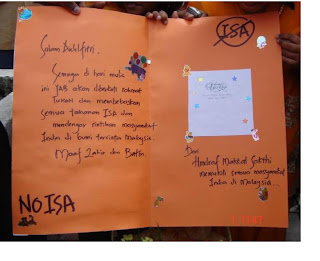 Salam Aidilfitri.
Semoga di hari mulia
ini YAB akan diberkati rahmat
Tuhan dan membebaskan
semua tahanan ISA dan
mendengar rintihan masyarakat
India di bumi tercinta Malaysia.
Maaf Zahir dan Batin.
NO ISA
ISA
Dari
Hindraf Makkal Sakthi
mewakili semua masyarakat
India di Malaysia